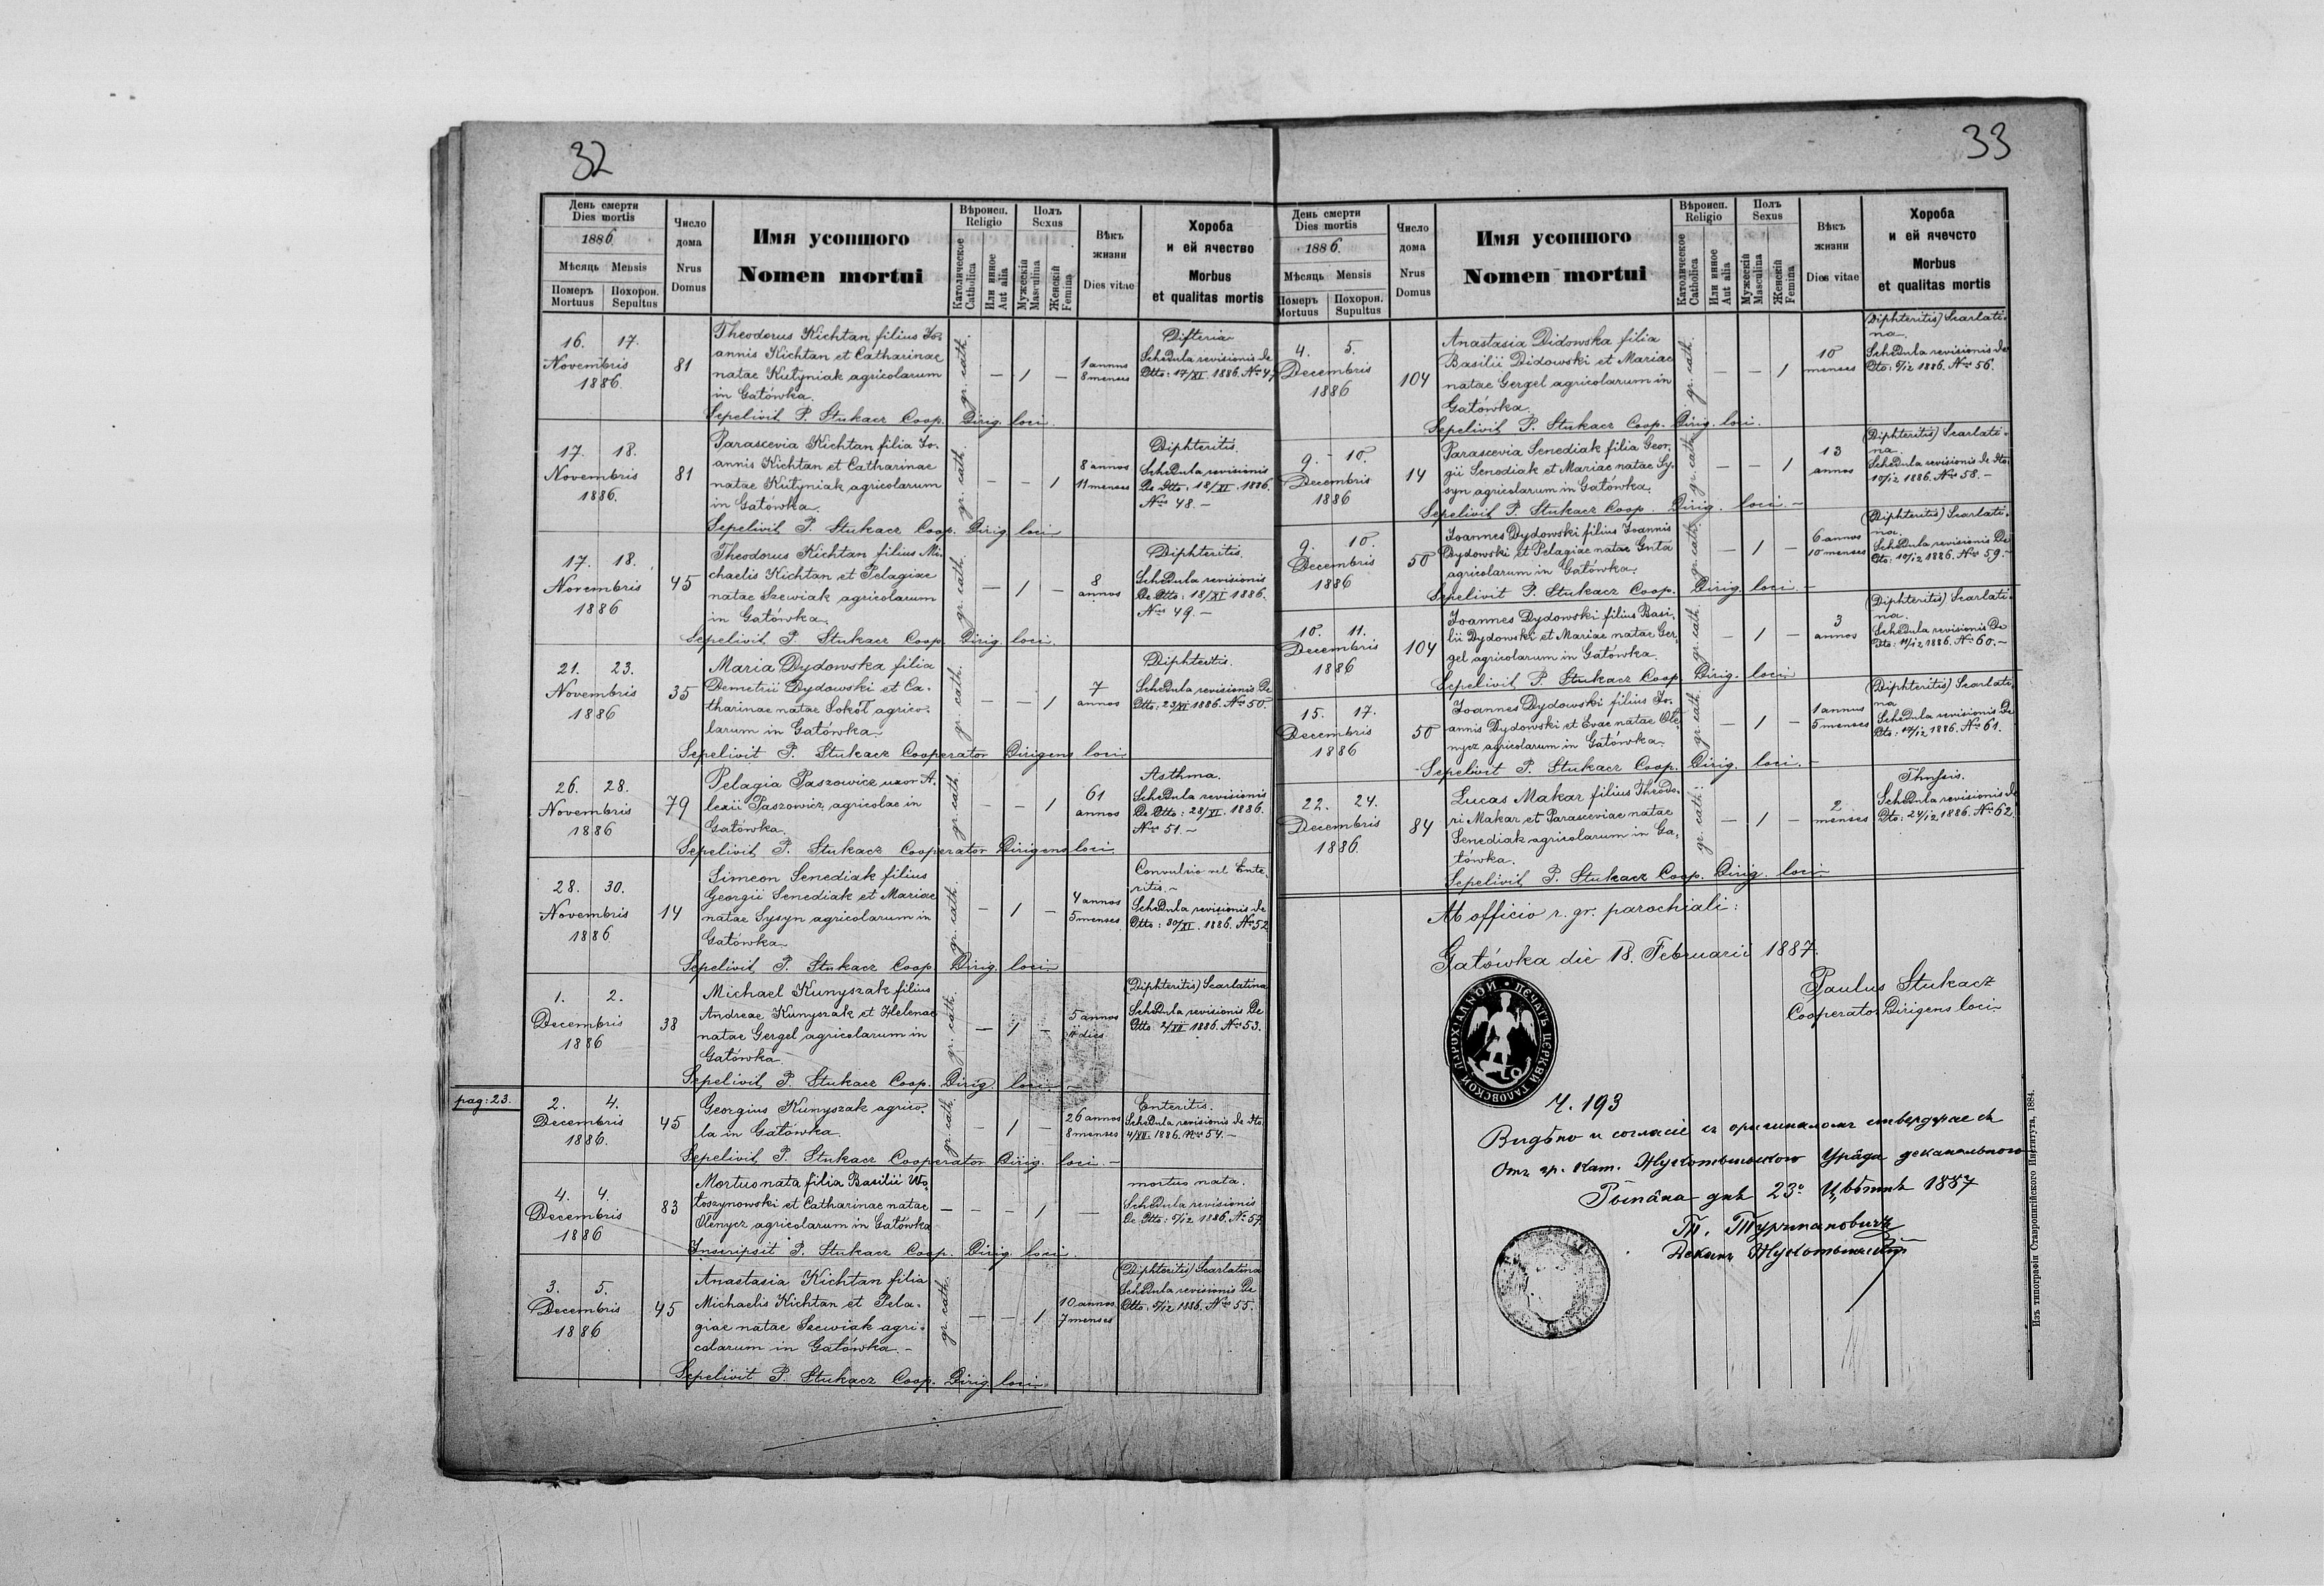 32
День смерти
Dies mortis
1886.
Мѣсяць Mensis
Померъ Похорон.
Mortuus Sepultus
Число
дома
Nrus
Domus
Имя усопшого
Nomen mortui
Вѣроисп.
Religio
Католическое
Catholica
Или инное
Aut alia
Полъ
Sexus
Мужескій
Masculina
Женскій
Femina
Вѣкъ
жизни
Dies vitae
Хороба
и ей ячество
Morbus
et qualitas mortis
16. 17.
Novembris
1886.
81
Theodorus Kichtan filius Jo-
annis Kichtan et Catharinae
natae Kutyniak agricolarum
in Gatówka.
gr. cath.
— 1 —
1 annus
8 menses
Difteria
Schedula revisionis de
Dtto: 17/XI. 1886. Nro 47
Sepelivit P. Stukacz Coop. Dirig. loci.
17. 18.
Novembris
1886.
81
Parascevia Kichtan filia Jo-
annis Kichtan et Catharinae
natae Kutyniak agricolarum
in Gatówka.
gr. cath.
— — 1
8 annos
11 menses
Diphteritis.
Schedula revisionis
De Dtto: 18/XI. 1886.
Nro 48. —
Sepelivit P. Stukacz Coop. Dirig. loci
17. 18.
Novembris
1886
45
Theodorus Kichtan filius Mi-
chaelis Kichtan et Pelagiae
natae Szewiak agricolarum
in Gatówka.
gr. cath.
— 1 —
8
annos
Diphteritis.
Schedula revisionis
De Dtto: 18/XI 1886.
Nro 49 —
Sepelivit P. Stukacz Coop. Dirig. loci.
21. 23.
Novembris
1886
35
Maria Dydowska filia
Demetrii Dydowski et Ca-
tharinae natae Sokoł agrico-
larum in Gatówka.
gr. cath.
— — 1
7
annos
Diphteritis.
Schedula revisionis De
Dtto: 23/XI 1886. Nro 50.
Sepelivit P. Stukacz Cooperator Dirigens loci
26. 28.
Novembris
1886
79
Pelagia Paszowicz uxor A-
lexii Paszowicz agricolae in
Gatówka.
gr. cath.
— — 1
61
annos
Asthma.
Schedula revisionis
De Dtto: 28/XI. 1886.
Nro 51. —
Sepelivit P. Stukacz Cooperator Dirigens loci.
28. 30.
Novembris
1886
14
Simeon Senediak filius
Georgii Senediak et Mariae
natae Sysyn agricolarum in
Gatówka
gr. cath.
— 1 —
4 annos
5 menses
Convulsio vel Ente-
ritis. —
Schedula revisionis de
Dtto: 30/XI. 1886. Nro 52
Sepelivit P. Stukacz Coop. Dirig. loci.
1. 2.
Decembris
1886
38
Michael Kunyszak filius
Andreae Kunyszak et Helenae
natae Gergel agricolarum in
Gatówka
gr. cath.
— 1 —
5 annos
11 dies
(Diphteritis) Scarlatina
Schedula revisionis De
Dtto 2/XII 1886. Nro 53.
Sepelivit P. Stukacz Coop. Dirig. loci. —
pag: 23.
2. 4.
Decembris
1886.
45
Georgius Kunyszak agrico-
la in Gatówka
gr. cath.
— 1 —
26 annos
8 menses
Enteritis.
Schedula revisionis de Dto
4/XII. 1886. Nro 54. —
Sepelivit P. Stukacz Cooperator Dirig. loci. —
4. 4.
Decembris
1886
83
Mortuonata filia Basilii Wo-
łoszynowski et Catharinae natae
Olenycz agricolarum in Gatówka
— — — 1 —
mortuo nata.
Schedula revisionis
De Dtto: 5/12 1886. Nro 57.
Inscripsit P. Stukacz Coop. Dirig. loci.
3. 5.
Decembris
1886
45
Anastasia Kichtan filia
Michaelis Kichtan et Pela-
giae natae Szewiak agri-
colarum in Gatówka. —
gr. cath.
— — 1
10 annos
7 menses
(Diphteritis) Scarlatina
Schedula revisionis De
Dtto: 5/12 1886. Nro 55.
Sepelivit P. Stukacz Coop. Dirig. loci.
33
День смерти
Dies mortis
1886.
Мѣсяць Mensis
Померъ Похорон.
Mortuus Supultus
Число
дома
Nrus
Domus
Имя усопшого
Nomen mortui
Вѣроисп.
Religio
Католическое
Catholica
Или инное
Aut alia
Полъ
Sexus
Мужескій
Masculina
Женскій
Femina
Вѣкъ
жизни
Dies vitae
Хороба
и ей ячечсто
Morbus
et qualitas mortis
4. 5.
Decembris
1886
104
Anastasia Didowska filia
Basilii Didowski et Mariae
natae Gergel agricolarum in
Gatówka.
gr. cath.
— — 1
10
menses
(Diphteritis) Scarlati-
na
Schedula revisionis de
Dto: 5/12 1886. Nro 56.
Sepelivit P. Stukacz Coop. Dirig. loci.
9. 10.
Decembris
1886
14
Parascevia Senediak filia Geor-
gii Senediak et Mariae natae Sy-
syn agricolarum in Gatówka.
gr. cath.
— — 1
13
annos
(Diphteritis) Scarlati-
na.
Schedula revisionis de Dto.
10/12 1886. Nro 58. —
Sepelivit P. Stukacz Coop. Dirig. loci. —
9. 10.
Decembris
1886
50
Joannes Dydowski filius Joannis
Dydowski et Pelagiae natae Gnta
agricolarum in Gatówka.
gr. cath.
— 1 —
6 annos
10 menses
(Diphteritis) Scarlati-
na.
Schedula revisionis De
Dto: 10/12 1886. Nro 59. —
Sepelivit P. Stukacz Coop. Dirig. loci. —
10. 11.
Decembris
1886
104
Joannes Dydowski filius Basi-
lii Dydowski et Mariae natae Ger-
gel agricolarum in Gatówka.
gr. cath.
— 1 —
3
annos
(Diphteritis) Scarlati-
na.
Schedula revisionis De
Dto: 11/12 1886. Nro 60. —
Sepelivit P. Stukacz Coop Dirig. loci
15. 17.
Decembris
1886
50
Joannes Dydowski filius Jo-
annis Dydowski et Evae natae Ole-
nycz agricolarum in Gatówka.
gr. cath.
— 1 —
1 annus
5 menses
(Diphteritis) Scarlati-
na
Schedula revisionis De
Dto: 17/12 1886. Nro 61.
Sepelivit P. Stukacz Coop. Dirig. loci. —
22. 24.
Decembris
1886.
84
Lucas Makar filius Theodo-
ri Makar et Parasceviae natae
Senediak agricolarum in Ga-
tówka.
gr. cath.
— 1 —
2
menses
Schedula revisionis de
Dto: 24/12 1886. Nro 62.
Sepelivit P. Stukacz Coop. Dirig. loci
Ab officio r. gr. parochiali:
Gatówka die 18. Februarii 1887.
Paulus Stukacz
Cooperator Dirigens loci
ПЕЧАТЬ ЦЕРКВИ ГАЛОВСКОЙ ПАРОХІАЛЬНОЙ
Ч. 193
Видѣно и согласіе съ оригиналомъ ствердрае ся
Отъ гр. Кат. Жукотыньского Уряда деканального
дня 23о Цвѣтня 1887
Деканъ
Изъ типографіи Ставропигійского Института, 1884.